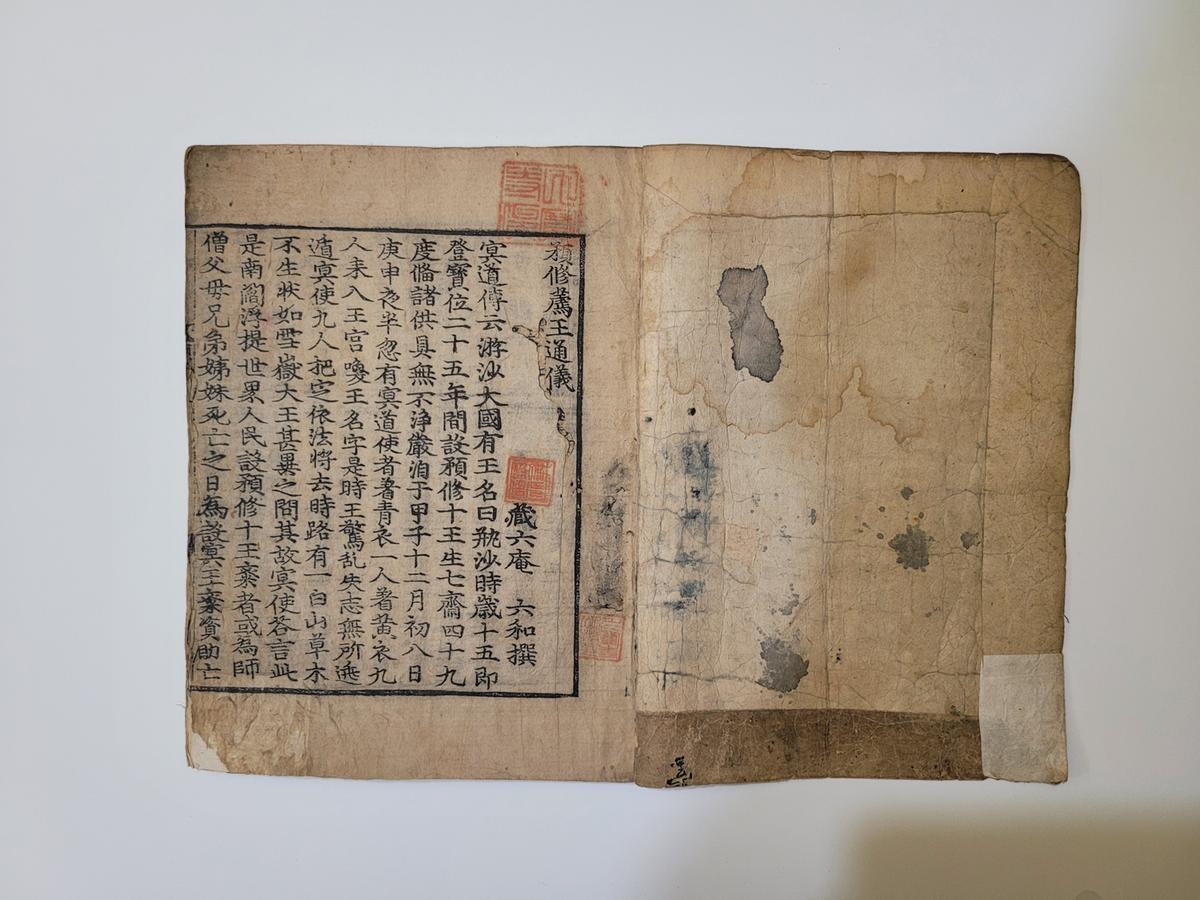 預修薦王通儀
藏六庵 六和撰
冥道傳云游沙大國有王名曰瓶沙時歲十五即
登寶位二十五年間設預修十王生七齋四十九
度備諸供具無不淨嚴洎于甲子十二月初八日
庚申夜半忽有冥道使者著青衣一人著黃衣九
人来入王宫喚王名字是時王驚乱失志無所逃
遁冥使九人把定依法將去時路有一白山草木
不生狀如雪嶽大王甚異之問其故冥使答言此
是南閻浮提世界人民設預修十王齋者或為師
僧父母兄弟姊妹死亡之日為設冥王齋資助亡